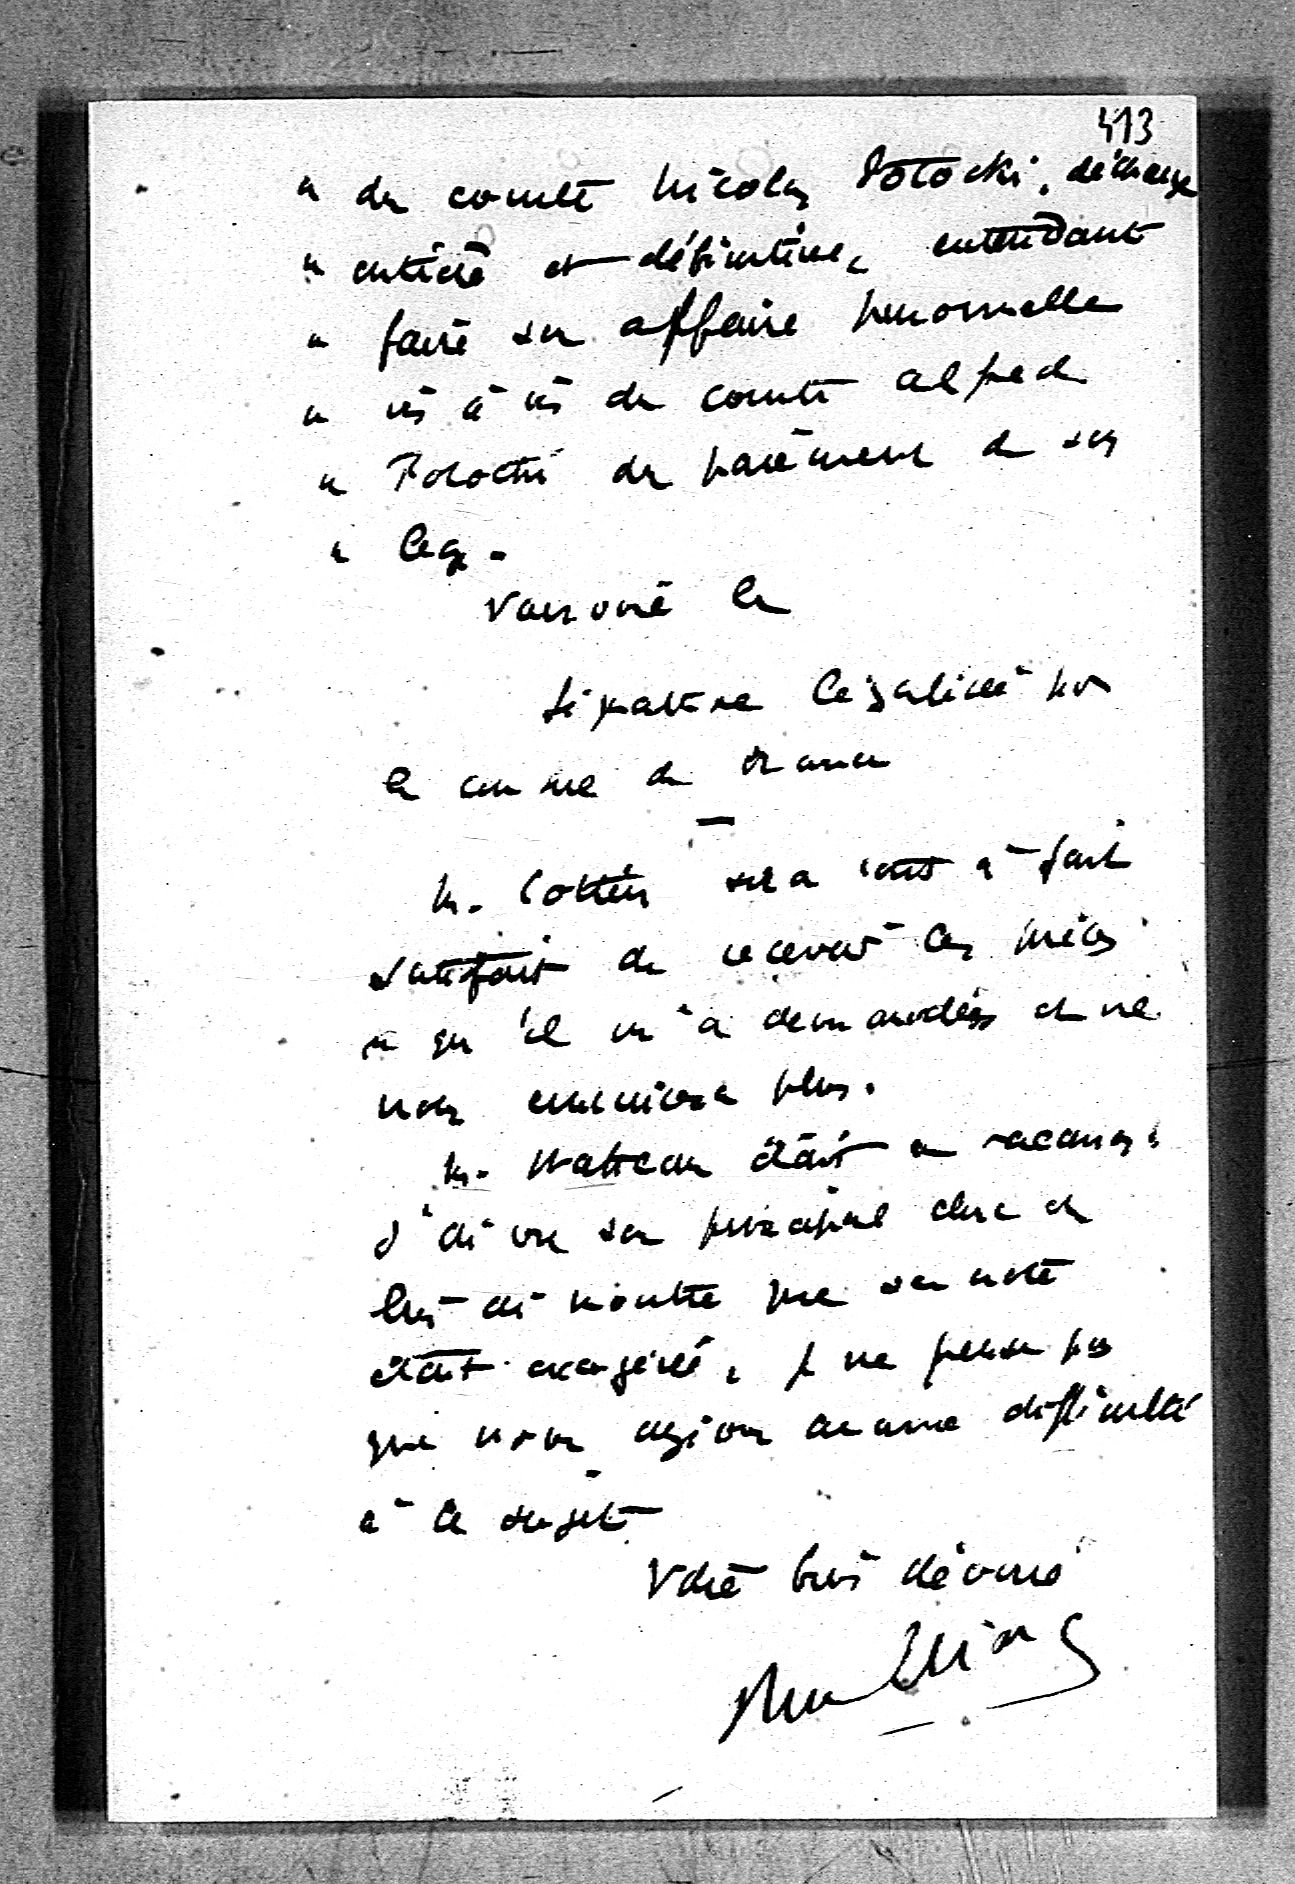 413
" du comte Nicolas Potocki, décharge
" entière et définitive, entendant
" faire son affaire personnelle
" vis à vis du comte Alfred
" Potocki du paiement de ses
" legs.
Varsovie le
Signature légalisée par
le consul de France
—
M. Cottin sera tout à fait
satisfait de recevoir les pièces
qu'il m'a demandées et ne
nous ennuiera plus.
M. Watteau était en vacances,
J'ai vu son principal clerc et
lui ai montré que sa note
était exagérée, je ne pense pas
que nous ayions aucune difficulté
à ce sujet
Votre très dévoué